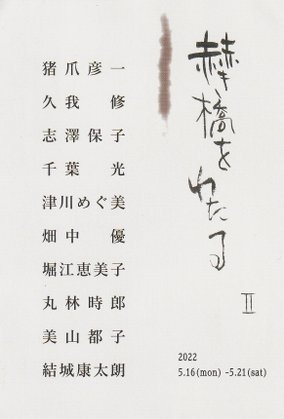 赫い橋をわたる
Ⅱ
猪爪彦一
久我修
志澤保子
千葉光
津川めぐ美
畑中優
堀江恵美子
丸林時郎
美山都子
結城康太朗
2022
5.16(mon) -5.21(sat)